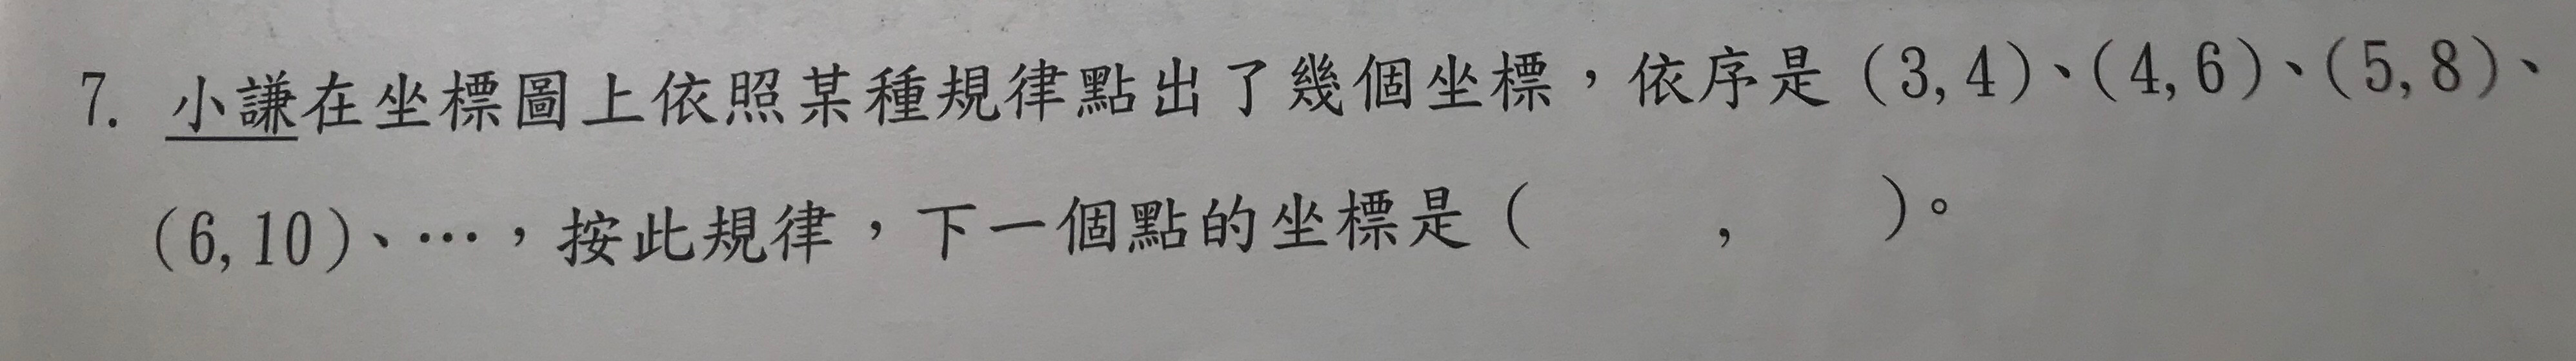 7. 小謙在坐標圖上依照某種規律點出了幾個坐標，依序是(3,4)、(4,6)、(5,8)、
(6,10)、…，按此規律，下一個點的坐標是(　　,　　)。